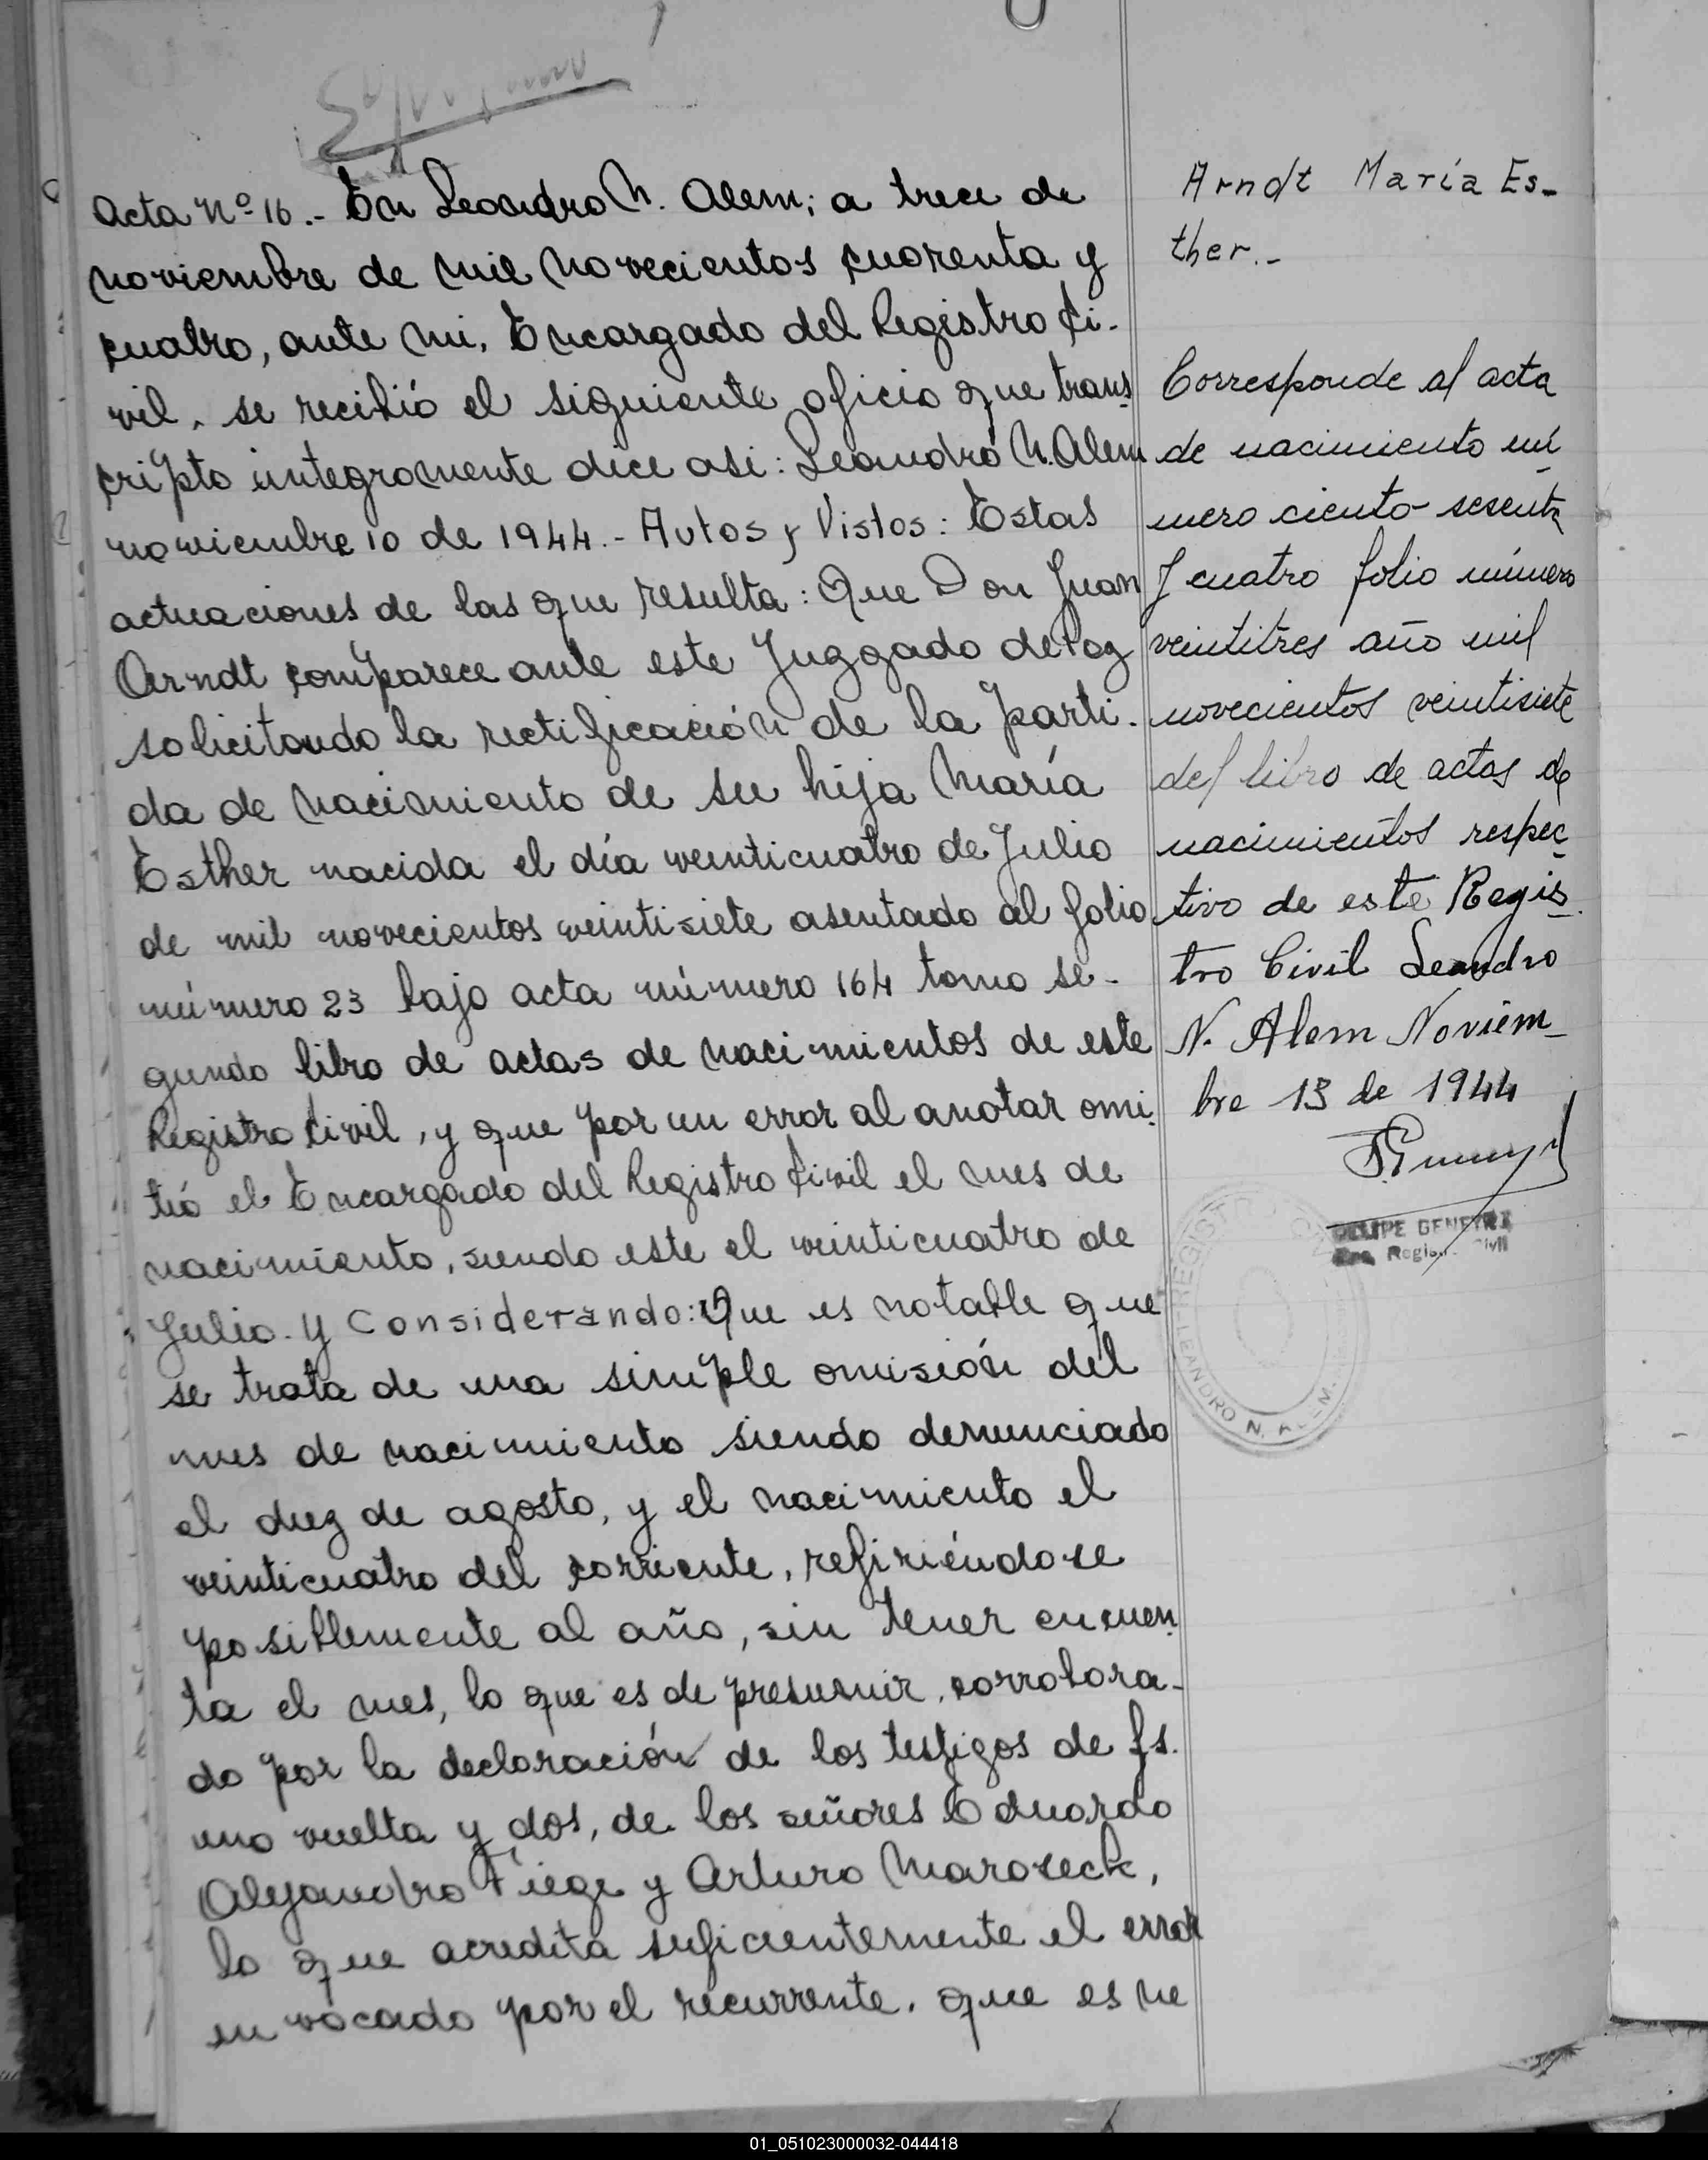 Acta Nº 16.- En Leandro N. Alem; a trece de
noviembre de mil novecientos cuarenta y
cuatro, ante mi, Encargado del Registro Ci-
vil, se recibió el siguiente oficio que trans
cripto integramente dice asi: Leandro N. Alem
noviembre 10 de 1944.- Autos y Vistos: Estas
actuaciones de las que resulta: Que Don Juan
Arndt comparece ante este Juzgado de Paz
solicitando la rectificación de la parti-
da de nacimiento de su hija María
Esther nacida el día veinticuatro de Julio
de mil novecientos veintisiete asentado al folio
número 23 bajo acta número 164 tomo se-
gundo libro de actas de nacimientos de este
Registro Civil, y que por un error al anotar omi
tió el Encargado del Registro Civil el mes de
nacimiento, siendo este el veinticuatro de
Julio. Y Considerando: Que es notable que
se trata de una simple omisión del
mes de nacimiento siendo denunciado
el diez de agosto, y el nacimiento el
veinticuatro del corriente, refiriéndose
posiblemente al año, sin tener en cuen
ta el mes, lo que es de presumir, corrobora-
do por la declaración de los testigos de fs.
uno vuelta y dos, de los señores Eduardo
Alejandro Fiege y Arturo Maroseck,
lo que acredita suficientemente el error
invocado por el recurrente, que es ne
Arndt María Es-
ther.-
Corresponde al acta
de nacimiento nú
mero ciento sesenta
y cuatro folio número
veintitres año mil
novecientos veintisiete
del libro de actas de
nacimientos respec
tivo de este Regis
tro Civil Leandro
N. Alem Noviem-
bre 13 de 1944
FELIPE GENEYRI
Enc. Registro Civil
REGISTRO CIVIL
LEANDRO N. ALEM
01_051023000032-044418